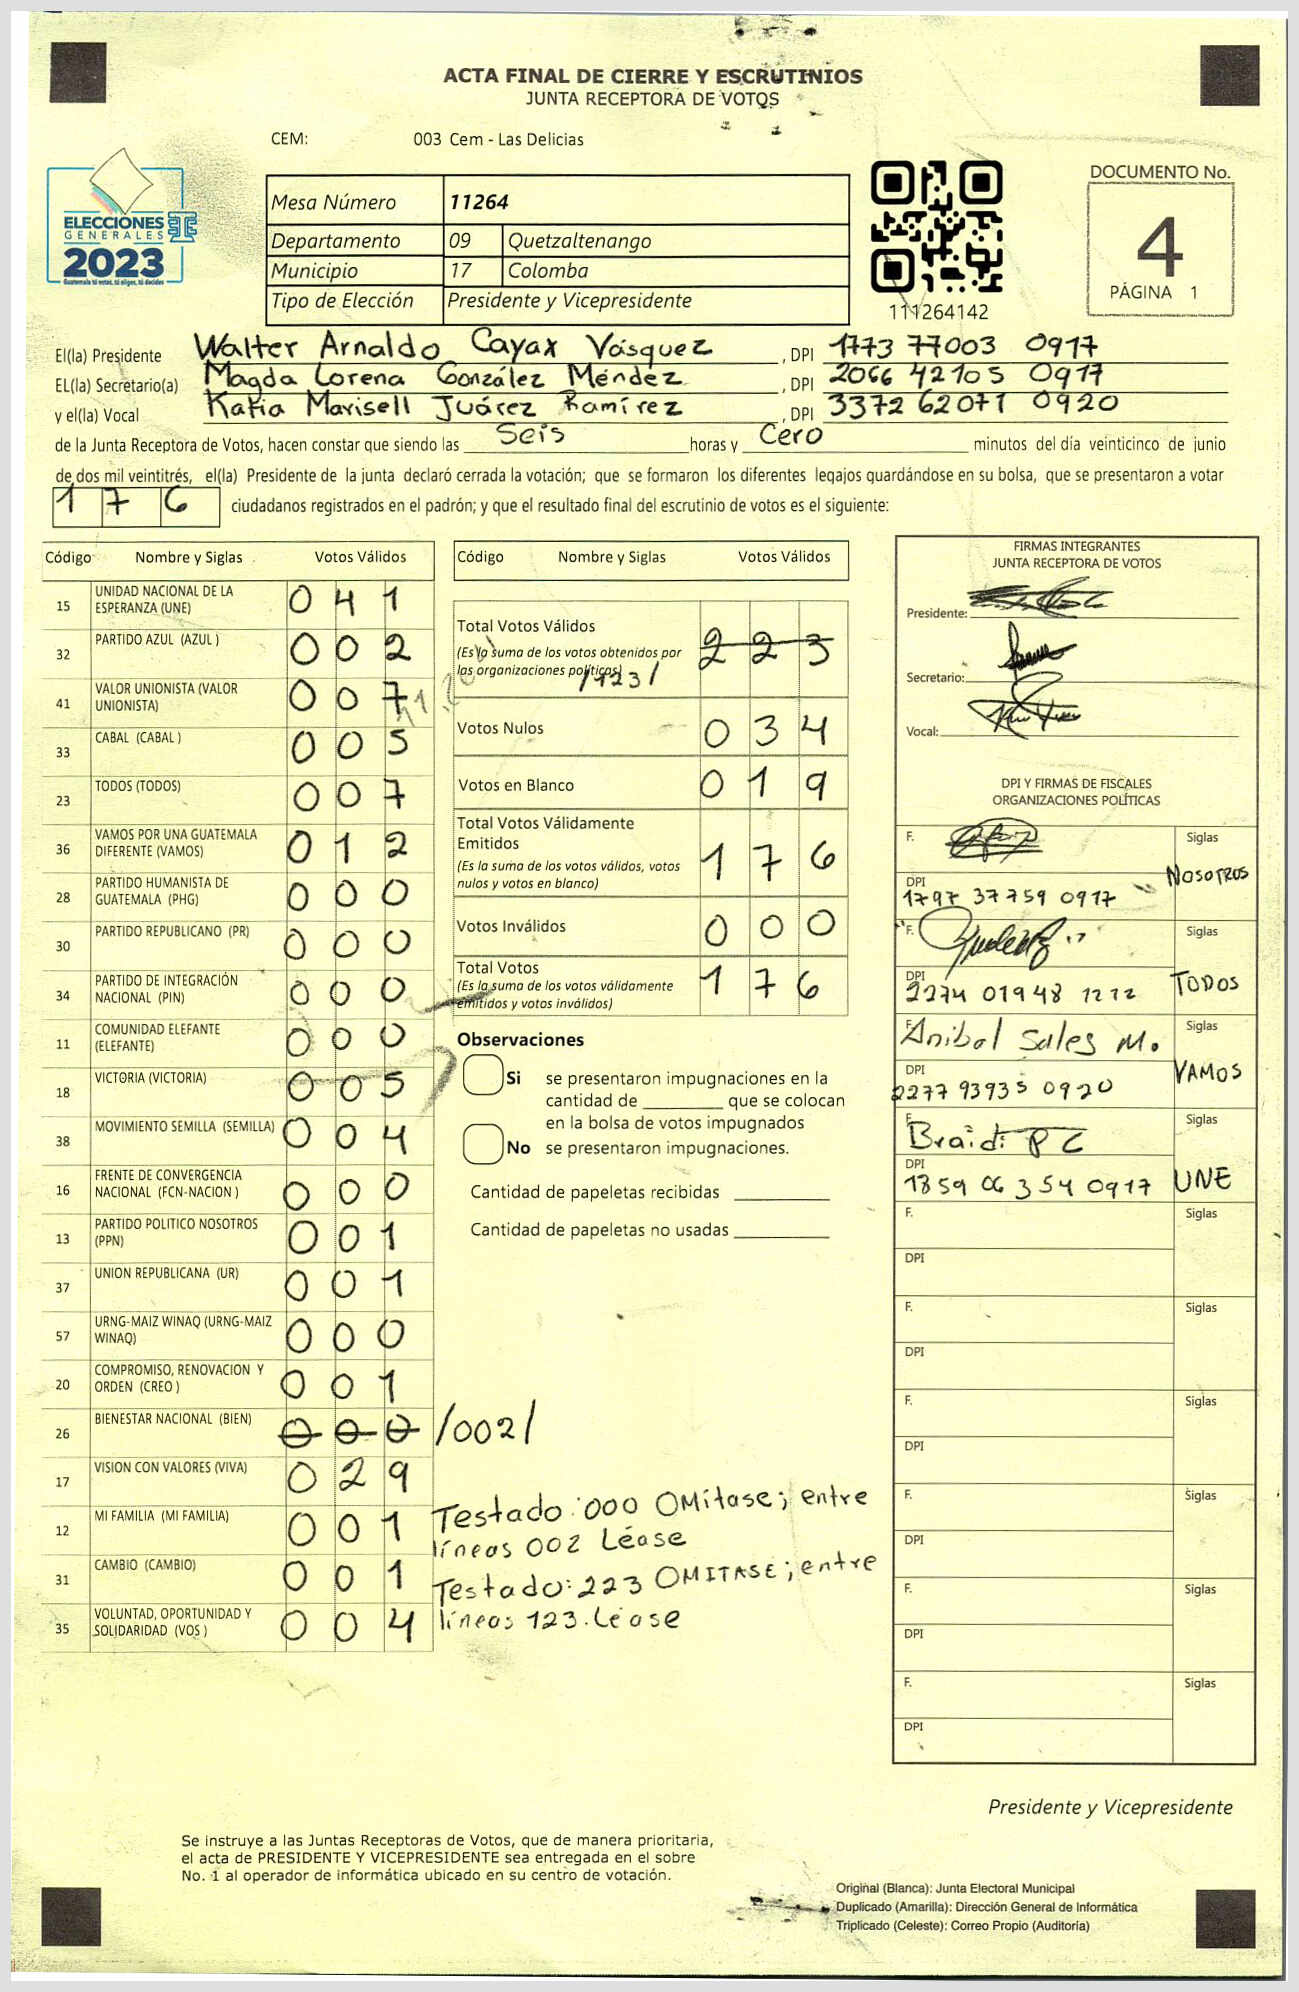 ACTA FINAL DE CIERRE Y ESCRUTINIOS
JUNTA RECEPTORA DE VOTOS
CEM: 003 Cem - Las Delicias
ELECCIONES
GENERALES
2023
Guatemala tú votas, tú eliges, tú decides
Mesa Número 11264
Departamento 09 Quetzaltenango
Municipio 17 Colomba
Tipo de Elección Presidente y Vicepresidente
111264142
DOCUMENTO No.
4
PÁGINA 1
El(la) Presidente Walter Arnaldo Cayax Vásquez, DPI 1773 77003 0917
EL(la) Secretario(a) Magda Lorena González Méndez, DPI 2066 42105 0917
y el(la) Vocal Katia Marisell Juárez Ramírez, DPI 3372 62071 0920
de la Junta Receptora de Votos, hacen constar que siendo las Seis horas y Cero minutos del día veinticinco de junio
de dos mil veintitrés, el(la) Presidente de la junta declaró cerrada la votación; que se formaron los diferentes legajos guardándose en su bolsa, que se presentaron a votar
176 ciudadanos registrados en el padrón; y que el resultado final del escrutinio de votos es el siguiente:
Código Nombre y Siglas Votos Válidos
15 UNIDAD NACIONAL DE LA ESPERANZA (UNE) 041
32 PARTIDO AZUL (AZUL ) 002
41 VALOR UNIONISTA (VALOR UNIONISTA) 007
33 CABAL (CABAL ) 005
23 TODOS (TODOS) 007
36 VAMOS POR UNA GUATEMALA DIFERENTE (VAMOS) 012
28 PARTIDO HUMANISTA DE GUATEMALA (PHG) 000
30 PARTIDO REPUBLICANO (PR) 000
34 PARTIDO DE INTEGRACIÓN NACIONAL (PIN) 000
11 COMUNIDAD ELEFANTE (ELEFANTE) 000
18 VICTORIA (VICTORIA) 005
38 MOVIMIENTO SEMILLA (SEMILLA) 004
16 FRENTE DE CONVERGENCIA NACIONAL (FCN-NACION ) 000
13 PARTIDO POLITICO NOSOTROS (PPN) 001
37 UNION REPUBLICANA (UR) 001
57 URNG-MAIZ WINAQ (URNG-MAIZ WINAQ) 000
20 COMPROMISO, RENOVACION Y ORDEN (CREO ) 001
26 BIENESTAR NACIONAL (BIEN) 000 /002/
17 VISION CON VALORES (VIVA) 029
12 MI FAMILIA (MI FAMILIA) 001
31 CAMBIO (CAMBIO) 001
35 VOLUNTAD, OPORTUNIDAD Y SOLIDARIDAD (VOS ) 004
Testado: 000 OMítase; entre
líneas 002 Léase
Testado: 223 OMITASE; entre
líneas 123. Léase
Código Nombre y Siglas Votos Válidos
Total Votos Válidos 223
(Es la suma de los votos obtenidos por
las organizaciones políticas)
/123/
Votos Nulos 034
Votos en Blanco 019
Total Votos Válidamente
Emitidos 176
(Es la suma de los votos válidos, votos
nulos y votos en blanco)
Votos Inválidos 000
Total Votos 176
(Es la suma de los votos válidamente
emitidos y votos inválidos)
Observaciones
Si se presentaron impugnaciones en la
cantidad de ________ que se colocan
en la bolsa de votos impugnados
No se presentaron impugnaciones.
Cantidad de papeletas recibidas
Cantidad de papeletas no usadas
FIRMAS INTEGRANTES
JUNTA RECEPTORA DE VOTOS
Presidente:
Secretario:
Vocal:
DPI Y FIRMAS DE FISCALES
ORGANIZACIONES POLÍTICAS
F. Siglas
DPI NOSOTROS
1797 37759 0917
F. Siglas
DPI TODOS
2274 01948 1212
F. Anibal Sales M. Siglas
DPI VAMOS
2277 93935 0920
F. Siglas
DPI UNE
1859 06354 0917
F. Siglas
DPI
F. Siglas
DPI
F. Siglas
DPI
F. Siglas
DPI
F. Siglas
DPI
F. Siglas
DPI
Presidente y Vicepresidente
Se instruye a las Juntas Receptoras de Votos, que de manera prioritaria,
el acta de PRESIDENTE Y VICEPRESIDENTE sea entregada en el sobre
No. 1 al operador de informática ubicado en su centro de votación.
Original (Blanca): Junta Electoral Municipal
Duplicado (Amarilla): Dirección General de Informática
Triplicado (Celeste): Correo Propio (Auditoría)